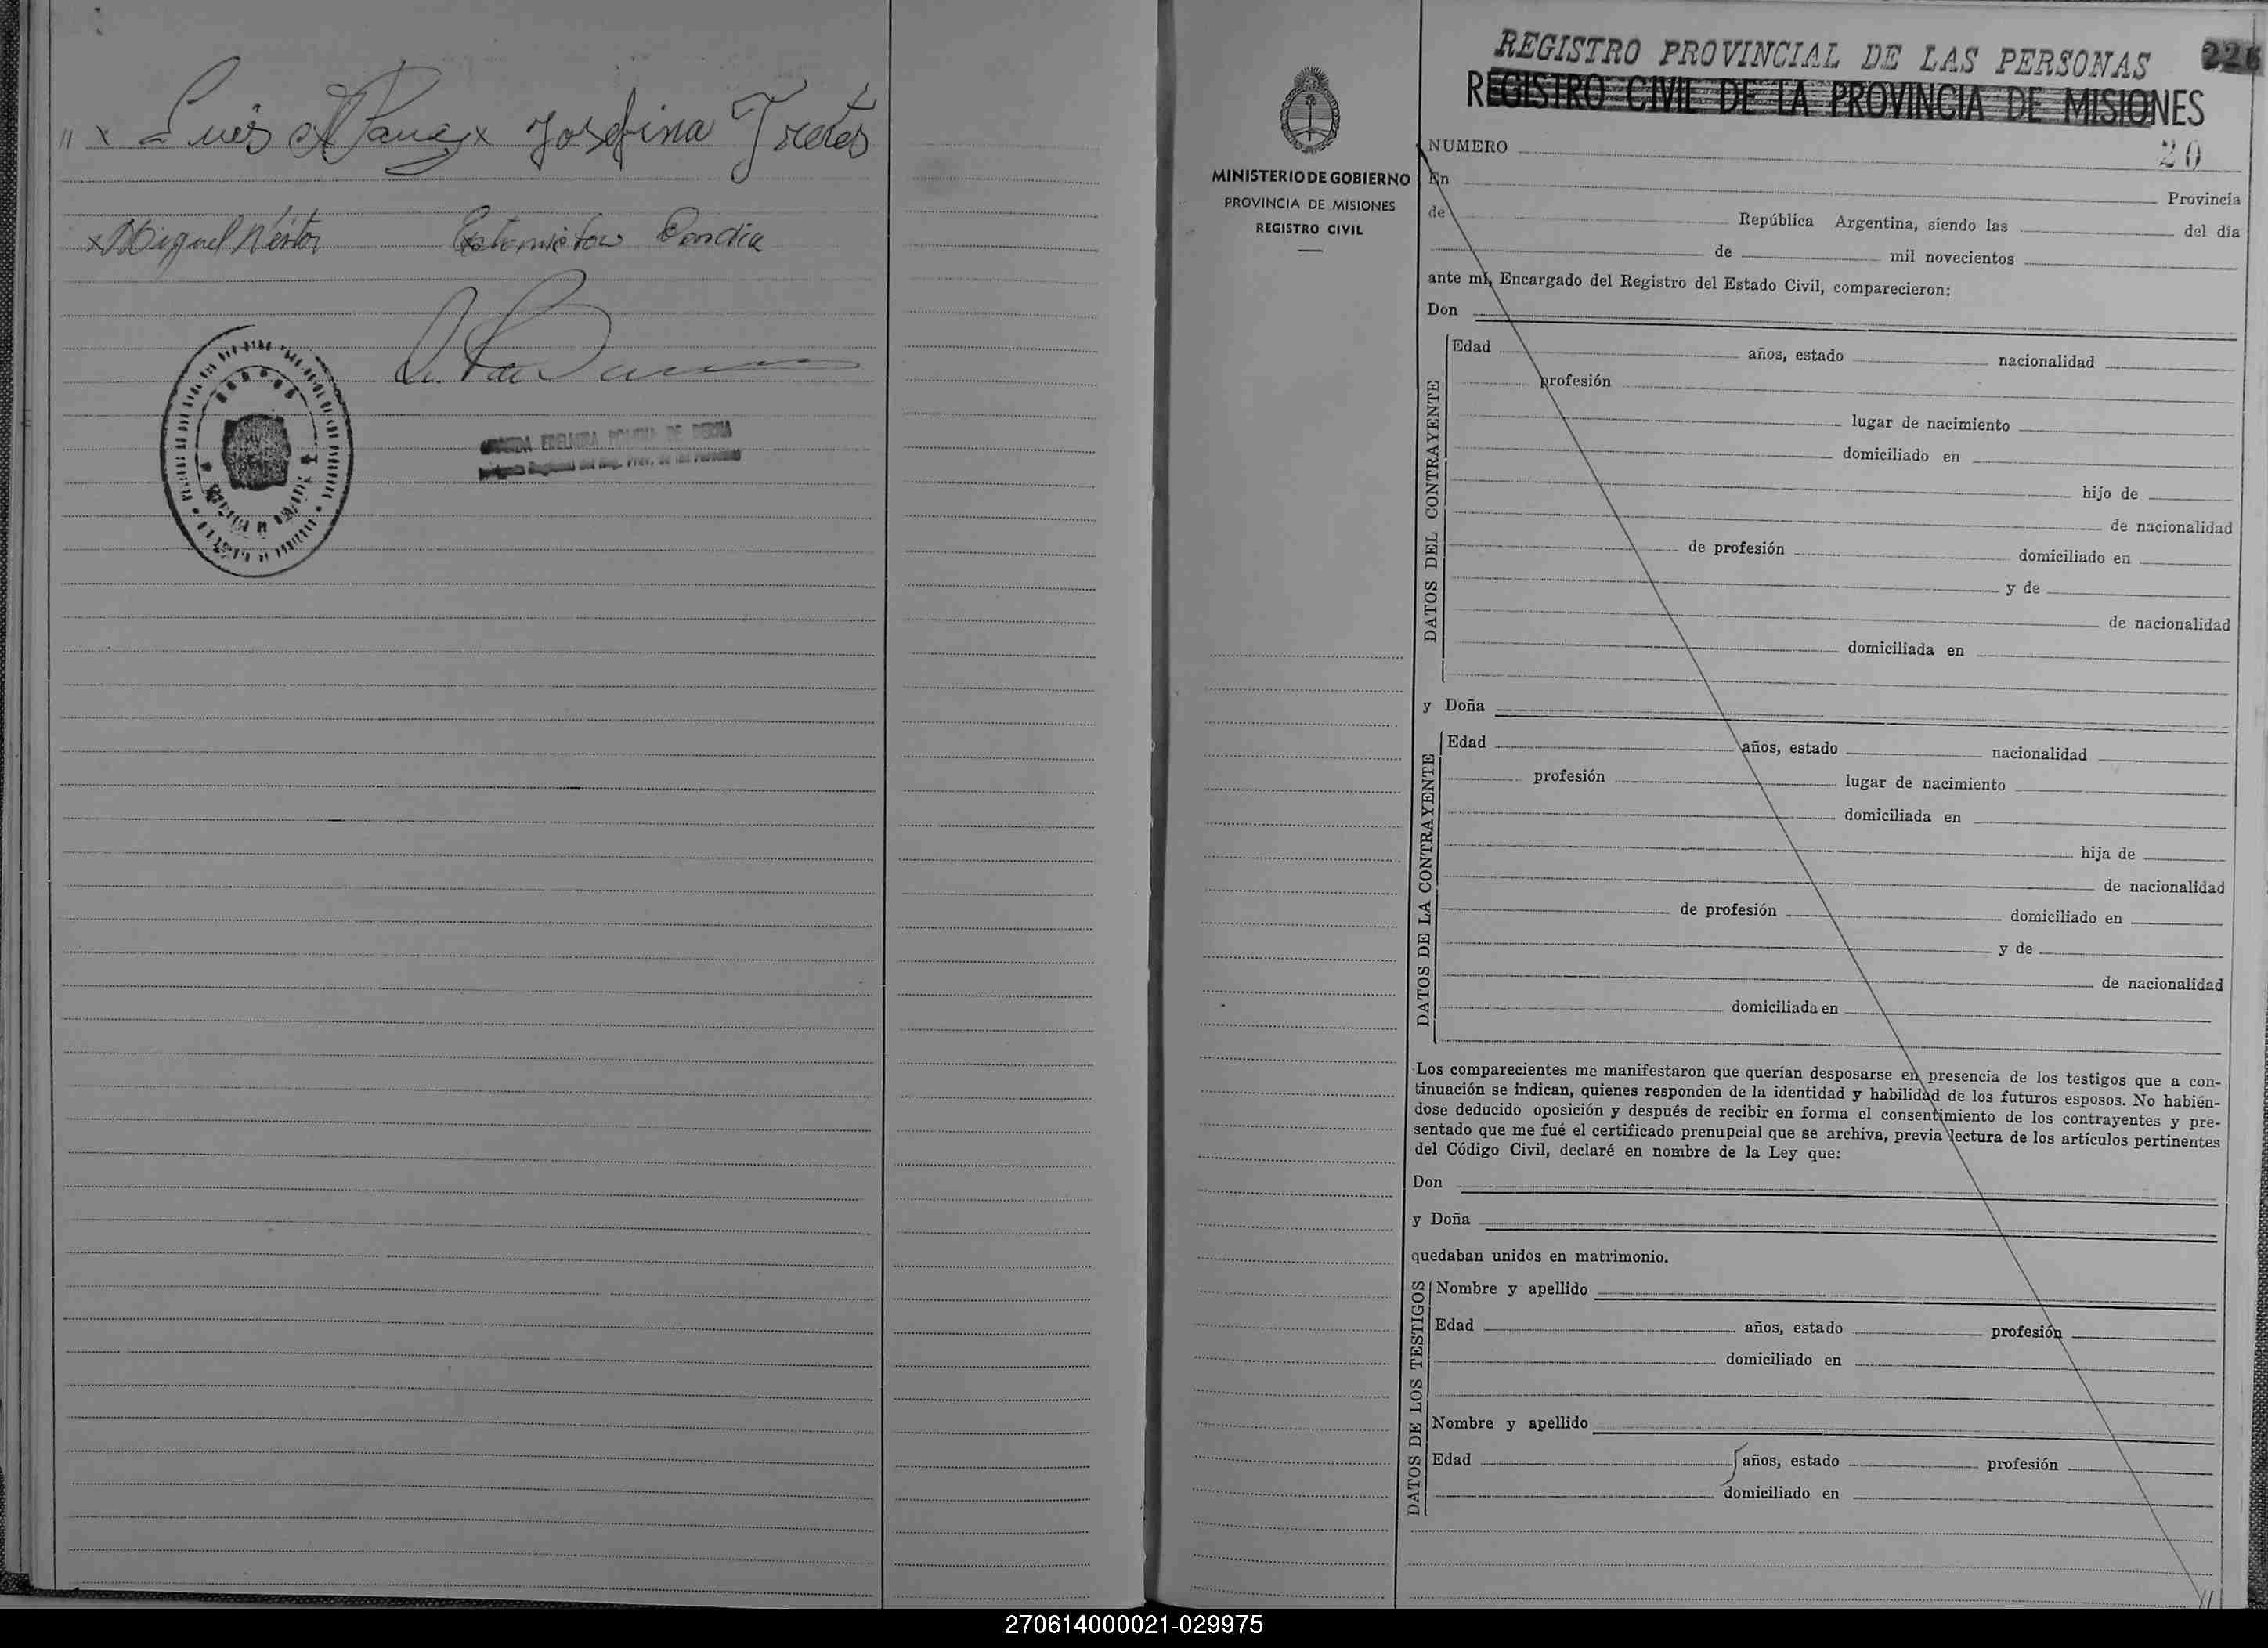 Luis
Josefina
Miguel Néstor
REGISTRO PROVINCIAL DE LAS PERSONAS
226
REGISTRO CIVIL DE LA PROVINCIA DE MISIONES
MINISTERIO DE GOBIERNO
PROVINCIA DE MISIONES
REGISTRO CIVIL
NUMERO 20
En Provincia
de República Argentina, siendo las del día
de mil novecientos
ante mí, Encargado del Registro del Estado Civil, comparecieron:
Don
DATOS DEL CONTRAYENTE
Edad años, estado nacionalidad
profesión
lugar de nacimiento
domiciliado en
hijo de
de nacionalidad
de profesión domiciliado en
y de
de nacionalidad
domiciliada en
y Doña
DATOS DE LA CONTRAYENTE
Edad años, estado nacionalidad
profesión lugar de nacimiento
domiciliada en
hija de
de nacionalidad
de profesión domiciliado en
y de
de nacionalidad
domiciliada en
Los comparecientes me manifestaron que querían desposarse en presencia de los testigos que a con-
tinuación se indican, quienes responden de la identidad y habilidad de los futuros esposos. No habién-
dose deducido oposición y después de recibir en forma el consentimiento de los contrayentes y pre-
sentado que me fué el certificado prenupcial que se archiva, previa lectura de los artículos pertinentes
del Código Civil, declaré en nombre de la Ley que:
Don
y Doña
quedaban unidos en matrimonio.
DATOS DE LOS TESTIGOS
Nombre y apellido
Edad años, estado profesión
domiciliado en
Nombre y apellido
Edad años, estado profesión
domiciliado en
270614000021-029975